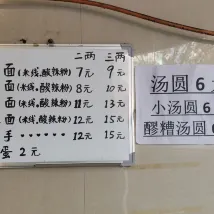 二两 三两
面(米线.酸辣粉) 7元 9元
面(米线.酸辣粉) 8元 10元
面(米线.酸辣粉) 11元 13元
面(米线.酸辣粉) 12元 15元
手 …… 12元 15元
蛋 2元
汤圆 6元
小汤圆 6
醪糟汤圆 6